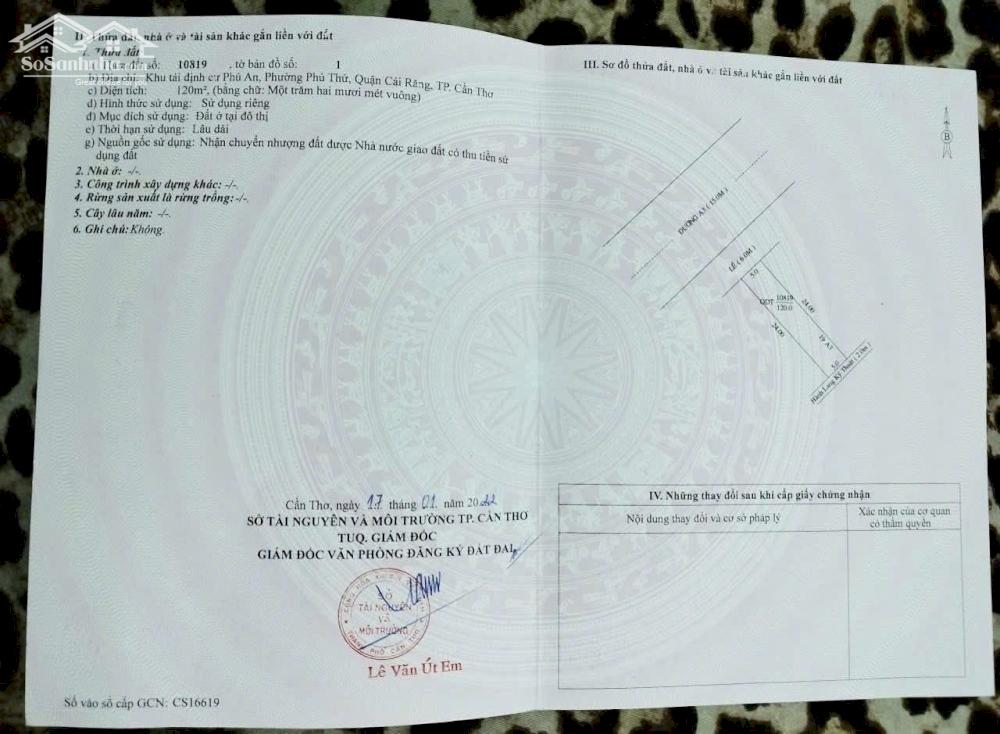 SoSanhnha
II. Thửa đất, nhà ở và tài sản khác gắn liền với đất
1. Thửa đất
số: 10819 , tờ bản đồ số: 1
b) Địa chỉ: Khu tái định cư Phú An, Phường Phú Thứ, Quận Cái Răng, TP. Cần Thơ
c) Diện tích: 120m², (bằng chữ: Một trăm hai mươi mét vuông)
d) Hình thức sử dụng: Sử dụng riêng
đ) Mục đích sử dụng: Đất ở tại đô thị
e) Thời hạn sử dụng: Lâu dài
g) Nguồn gốc sử dụng: Nhận chuyển nhượng đất được Nhà nước giao đất có thu tiền sử
dụng đất
2. Nhà ở: -/-.
3. Công trình xây dựng khác: -/-.
4. Rừng sản xuất là rừng trồng: -/-.
5. Cây lâu năm: -/-.
6. Ghi chú: Không.
Cần Thơ, ngày 17 tháng 01 năm 2022
SỞ TÀI NGUYÊN VÀ MÔI TRƯỜNG TP. CẦN THƠ
TUQ. GIÁM ĐỐC
GIÁM ĐỐC VĂN PHÒNG ĐĂNG KÝ ĐẤT ĐAI
SỞ
TÀI NGUYÊN
VÀ
MÔI TRƯỜNG
THÀNH PHỐ CẦN THƠ
Lê Văn Út Em
Số vào sổ cấp GCN: CS16619
III. Sơ đồ thửa đất, nhà ở và tài sản khác gắn liền với đất
B
ĐƯỜNG A3 ( 15.0M )
LỀ ( 6.0M )
5.0
ODT 10819
120.0
24.00
24.00
19 A3
5.0
Hành Lang Kỹ Thuật ( 2.0m )
IV. Những thay đổi sau khi cấp giấy chứng nhận
Nội dung thay đổi và cơ sở pháp lý
Xác nhận của cơ quan
có thẩm quyền